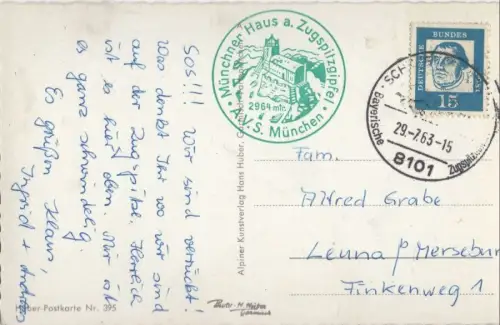 SOS!!! Wir sind verrückt!
Was denkt Ihr wo wir sind
auf der Zugspitze. Herrlich
ist es hier oben. Mir ist
es ganz schwindelig
Es grüßen Klaus,
Ingrid + Andreas
Münchner Haus a. Zugspitzgipfel
2964 mtr.
A.V.S. München
DEUTSCHE BUNDESPOST
15
Bayerische Zugspitz
29.-7.63-15
8101
Fam.
Alfred Grabe
Leuna / Merseburg
Finkenweg 1
Alpiner Kunstverlag Hans Huber, G
Huber-Postkarte Nr. 395
Photo-H. Huber
Garmisch